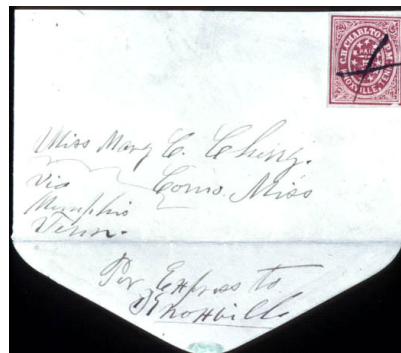 C.H. CHARLTON P.M.
PAID
KNOXVILLE, TENN.
Miss Mary C.
Como. Miss
Via
Memphis
Tenn.
Per Express to
Knoxville